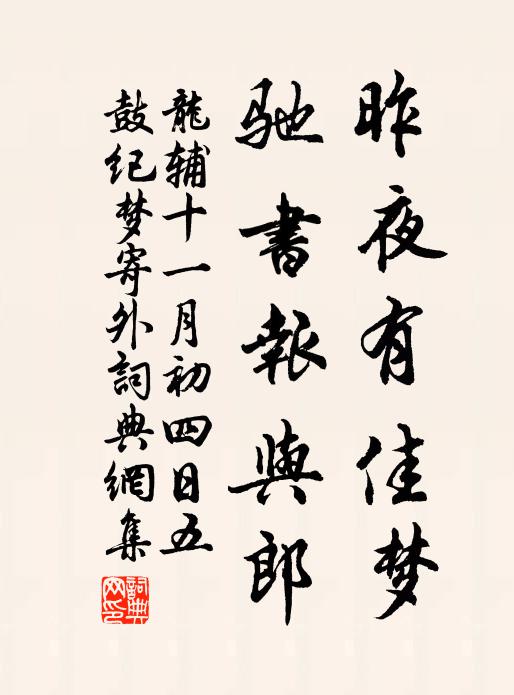 昨夜有佳梦
驰書報與郎
龍辅十一月初四日五
鼓纪梦寄外詞典網集
詞典网印